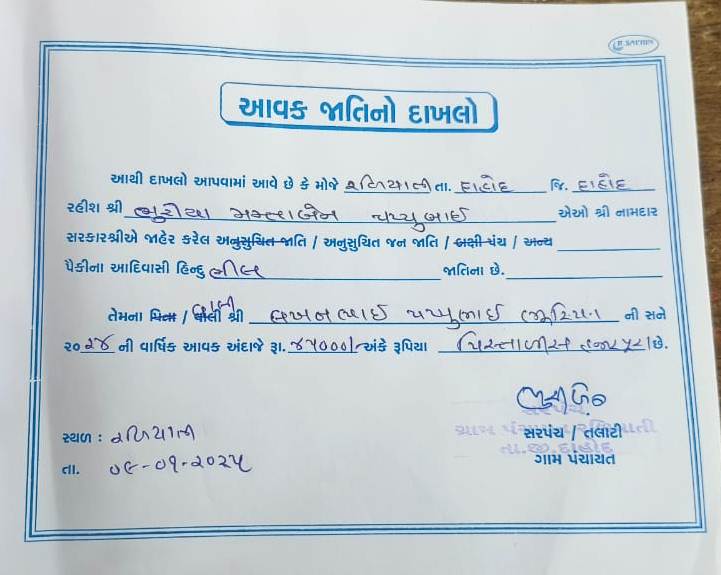 R. SACHIN
આવક જાતિનો દાખલો
આથી દાખલો આપવામાં આવે છે કે મોજે રળિયાતી તા. દાહોદ જિ. દાહોદ
રહીશ શ્રી ભુરીયા મમતાબેન પપ્પુભાઈ એઓ શ્રી નામદાર
સરકારશ્રીએ જાહેર કરેલ અનુસુચિત જાતિ / અનુસુચિત જન જાતિ / બક્ષી પંચ / અન્ય
પૈકીના આદિવાસી હિન્દુ ભીલ જાતિના છે.
તેમના પિતા / વાલી શ્રી લખનભાઈ પપ્પુભાઈ ભુરિયા ની સને
૨૦૨૪ ની વાર્ષિક આવક અંદાજે રૂા. ૪૫૦૦૦/- અંકે રૂપિયા પિસ્તાળીસ હજાર પૂરા છે.
સરપંચ
સ્થળ : રળિયાતી
ગ્રામ પંચાયત રળિયાતી
સરપંચ / તલાટી
તા.જી.દાહોદ
તા. ૦૯-૦૧-૨૦૨૫
ગામ પંચાયત